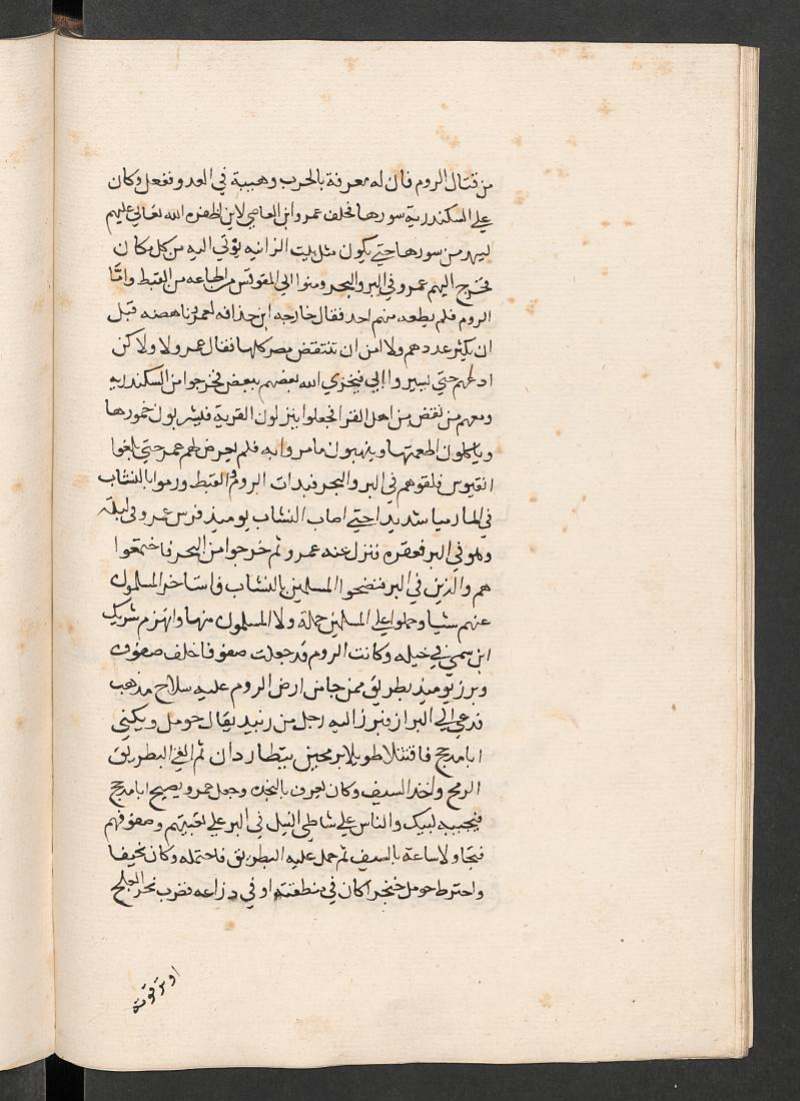 من قتال الروم فان له معرفة بالحرب وهيبة في العدو ففعل وكان
علي السكندرية سورها فحلف عمرو ابن العاصي لاين اظفره الله تعالي عليهم
ليهدمن سورها حتي يكون مثل بيت الزانيه يوتي اليه من كل مكان
فخرج اليهم عمرو في البر والبحر وضوا الي المقوقس من اطاعه من القبط وامّا
الروم فلم يطعه منهم احد فقال خارجه ابن حذافه لعمرو ناهضه قبل
ان يكثر عددهم ولا امن ان تنتقض مصر كلها فقال عمرو لا ولاكن
ادعهم حتي يسيروا الي فيخزي الله بعضهم ببعض فخرجوا من السكندريه
ومعهم من نقض من اهل القرا فجعلوا ينزلون القرية فيشربون خمورها
وياكلون اطعمتها وينهبون ما مروا به فلم يعرض لهم عمرو حتي بلغوا
نقيوس فلقوهم في البر والبحر فبدات الروم والقبط ورموا بالنشاب
في الما رميا شديدا حتي اصاب النشاب يوميذ فرس عمرو في لبته
وهو في البر فعقره فنزل عنه عمرو ثم خرجوا من البحر فاجتمعوا
هم والذين في البر فنضحوا المسلمين بالنشاب فاستاخر المسلمون
عنهم شيا وحملوا علي المسلمين حملة ولا المسلمون منها وانهزم شريك
ابن سمي في خيله وكانت الروم قد جعلت صفوفا خلف صفوف
وبرز يوميذ بطريق ممن جا من ارض الروم عليه سلاح مذهب
فدعي الي البراز فبرز اليه رجل من زبيد يقال حومل ويكني
ابا مدحج فاقتتلا طويلا برمحين يتطاردان ثم القي البطريق
الرمح واخذ السيف وكان يعرف بالنجده وجعل عمرو يصيح ابا مدحج
فيجيبه لبيك والناس علي شاطي النيل في البر علي تعبيتهم وصفوفهم
فتجاولا ساعة بالسيف ثم حمل عليه البطريق فاحتمله وكان نحيفا
واخترط حومل خنجرا كان في منطقته او في دراعه فضرب نحر العلج
او ترقوته